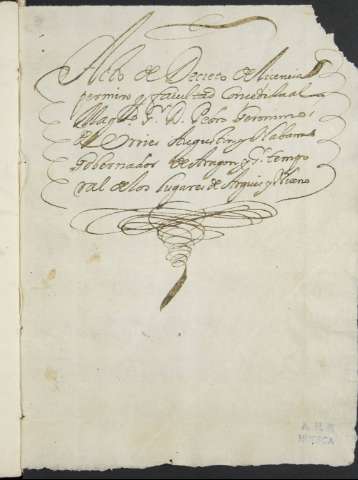 Acto de Decreto de licencia
permiso y facultad Concedida al
Mag.co Sr. D. Pedro Geronimo
de Urries Augustin y Nabarra
gobernador de Aragon, y Sr. tempo
ral de los lugares de Arguis y Nueno
A. H. P.
HUESCA